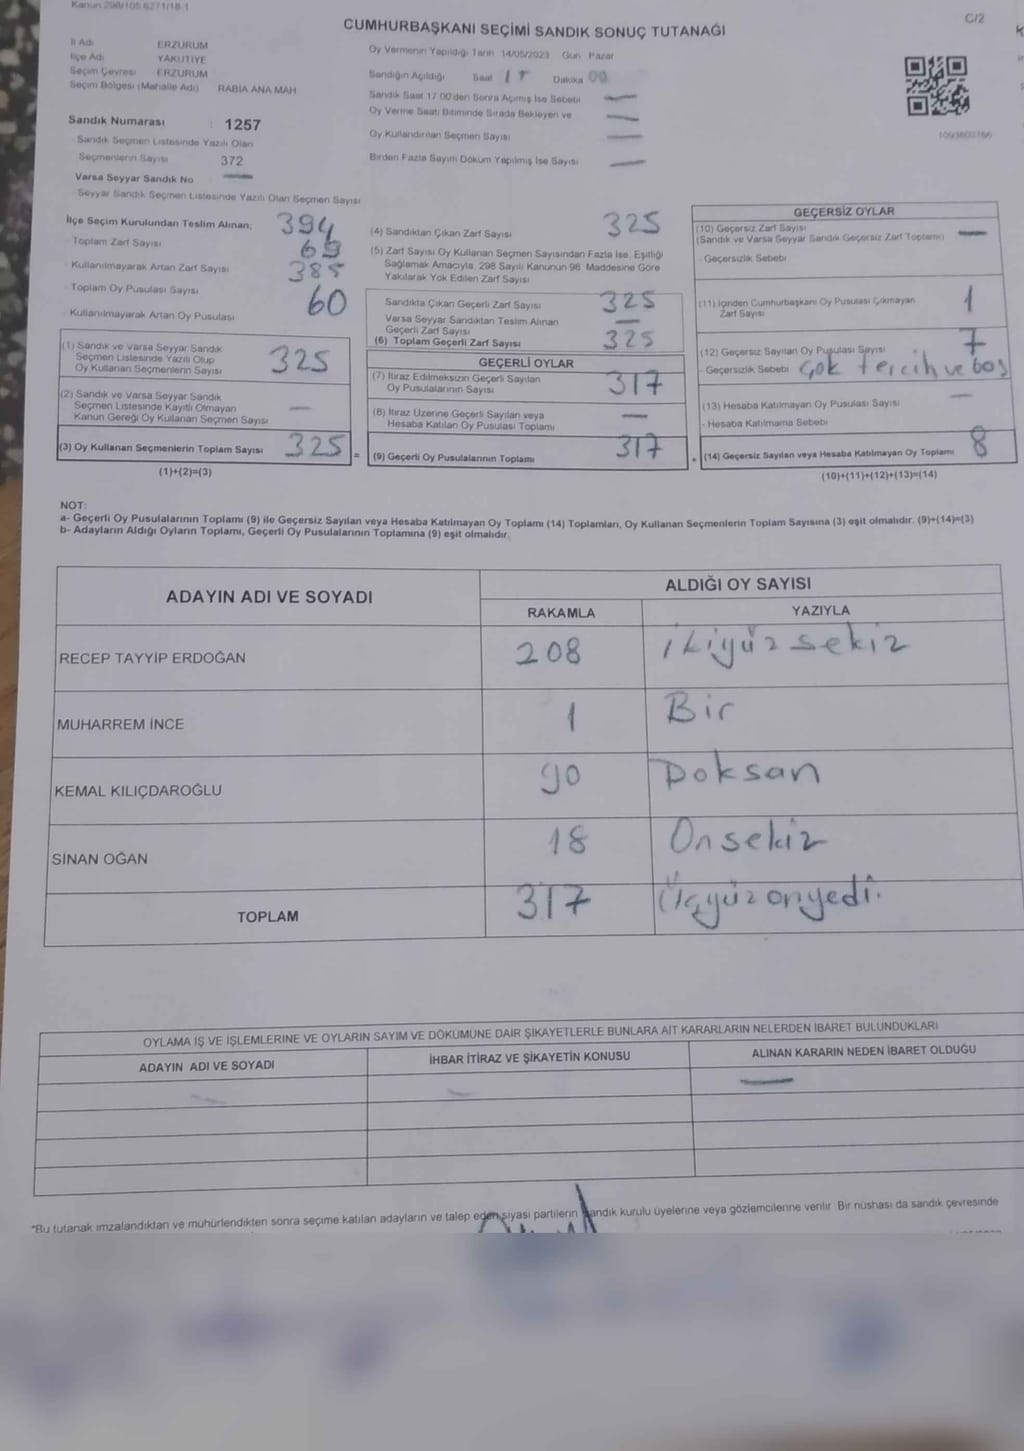 Kanun 298/105,6271/18-1
C/2
CUMHURBAŞKANI SEÇİMİ SANDIK SONUÇ TUTANAĞI
İl Adı ERZURUM
İlçe Adı YAKUTİYE
Seçim Çevresi ERZURUM
Seçim Bölgesi (Mahalle Adı) RABİA ANA MAH
Sandık Numarası : 1257
Sandık Seçmen Listesinde Yazılı Olan
Seçmenlerin Sayısı 372
Varsa Seyyar Sandık No —
Seyyar Sandık Seçmen Listesinde Yazılı Olan Seçmen Sayısı
Oy Vermenin Yapıldığı Tarih 14/05/2023 Gün Pazar
Sandığın Açıldığı Saat 17 Dakika 00
Sandık Saat 17.00'den Sonra Açılmış İse Sebebi —
Oy Verme Saati Bitiminde Sırada Bekleyen ve —
Oy Kullandırılan Seçmen Sayısı —
Birden Fazla Sayım Döküm Yapılmış İse Sayısı —
İlçe Seçim Kurulundan Teslim Alınan; 394
Toplam Zarf Sayısı 69
Kullanılmayarak Artan Zarf Sayısı 385
Toplam Oy Pusulası Sayısı 60
Kullanılmayarak Artan Oy Pusulası
(1) Sandık ve Varsa Seyyar Sandık
Seçmen Listesinde Yazılı Olup 325
Oy Kullanan Seçmenlerin Sayısı
(2) Sandık ve Varsa Seyyar Sandık
Seçmen Listesinde Kayıtlı Olmayan —
Kanun Gereği Oy Kullanan Seçmen Sayısı
(3) Oy Kullanan Seçmenlerin Toplam Sayısı 325 =
(1)+(2)=(3)
(4) Sandıktan Çıkan Zarf Sayısı 325
(5) Zarf Sayısı Oy Kullanan Seçmen Sayısından Fazla İse, Eşitliği
Sağlamak Amacıyla, 298 Sayılı Kanunun 98. Maddesine Göre
Yakılarak Yok Edilen Zarf Sayısı
Sandıkta Çıkan Geçerli Zarf Sayısı 325
Varsa Seyyar Sandıktan Teslim Alınan —
Geçerli Zarf Sayısı
(6) Toplam Geçerli Zarf Sayısı 325
GEÇERLİ OYLAR
(7) İtiraz Edilmeksizin Geçerli Sayılan
Oy Pusulalarının Sayısı 317
(8) İtiraz Üzerine Geçerli Sayılan veya
Hesaba Katılan Oy Pusulası Toplamı —
(9) Geçerli Oy Pusulalarının Toplamı 317 +
GEÇERSİZ OYLAR
(10) Geçersiz Zarf Sayısı
(Sandık ve Varsa Seyyar Sandık Geçersiz Zarf Toplamı) —
- Geçersizlik Sebebi
(11) İçinden Cumhurbaşkanı Oy Pusulası Çıkmayan 1
Zarf Sayısı
(12) Geçersiz Sayılan Oy Pusulası Sayısı 7
- Geçersizlik Sebebi Çok tercih ve boş
(13) Hesaba Katılmayan Oy Pusulası Sayısı —
- Hesaba Katılmama Sebebi
(14) Geçersiz Sayılan veya Hesaba Katılmayan Oy Toplamı 8
(10)+(11)+(12)+(13)=(14)
NOT:
a- Geçerli Oy Pusulalarının Toplamı (9) ile Geçersiz Sayılan veya Hesaba Katılmayan Oy Toplamı (14) Toplamları, Oy Kullanan Seçmenlerin Toplam Sayısına (3) eşit olmalıdır. (9)+(14)=(3)
b- Adayların Aldığı Oyların Toplamı, Geçerli Oy Pusulalarının Toplamına (9) eşit olmalıdır.
ADAYIN ADI VE SOYADI
ALDIĞI OY SAYISI
RAKAMLA YAZIYLA
RECEP TAYYİP ERDOĞAN 208 ikiyüz sekiz
MUHARREM İNCE 1 Bir
KEMAL KILIÇDAROĞLU 90 Doksan
SİNAN OĞAN 18 Onsekiz
TOPLAM 317 Üçyüz onyedi.
OYLAMA İŞ VE İŞLEMLERİNE VE OYLARIN SAYIM VE DÖKÜMÜNE DAİR ŞİKAYETLERLE BUNLARA AİT KARARLARIN NELERDEN İBARET BULUNDUKLARI
ADAYIN ADI VE SOYADI İHBAR İTİRAZ VE ŞİKAYETİN KONUSU ALINAN KARARIN NEDEN İBARET OLDUĞU
— — —
*Bu tutanak imzalandıktan ve mühürlendikten sonra seçime katılan adayların ve talep eden siyasi partilerin sandık kurulu üyelerine veya gözlemcilerine verilir. Bir nüshası da sandık çevresinde